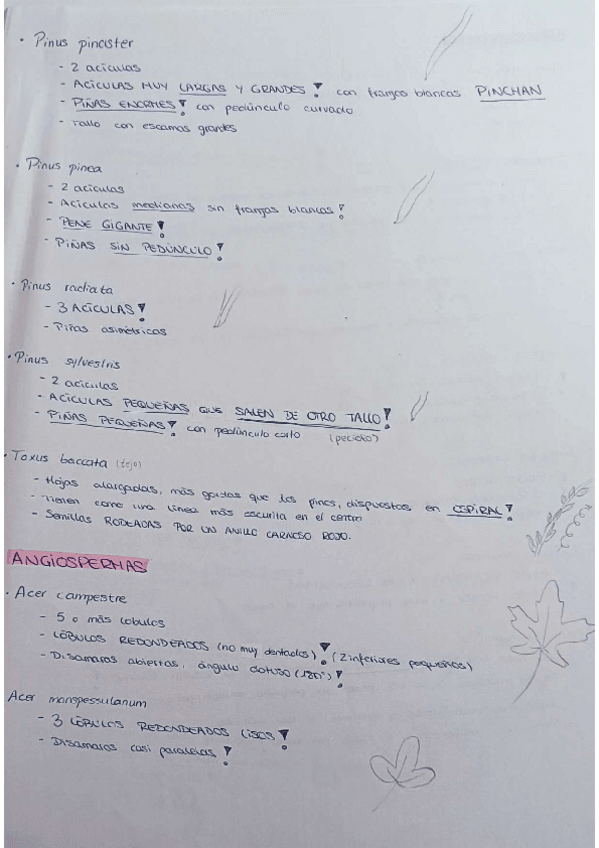 · Pinus pinaster
- 2 acículas
- ACÍCULAS MUY LARGAS Y GRANDES! con franjas blancas PINCHAN
- PIÑAS ENORMES! con pedúnculo curvado
- Tallo con escamas grandes
· Pinus pinea
- 2 acículas
- Acículas medianas sin franjas blancas!
- PENE GIGANTE!
- PIÑAS SIN PEDÚNCULO!
· Pinus radiata
- 3 ACÍCULAS!
- Piñas asimétricas
· Pinus sylvestris
- 2 acículas
- ACÍCULAS PEQUEÑAS QUE SALEN DE OTRO TALLO!
- PIÑAS PEQUEÑAS! con pedúnculo corto (peciolo)
· Taxus baccata (tejo)
- Hojas alargadas, más gordas que los pinos, dispuestas en ESPIRAL!
- Tienen como una línea más oscurita en el centro
- Semillas RODEADAS POR UN ANILLO CARNOSO ROJO.
ANGIOSPERMAS
· Acer campestre
- 5 o más lóbulos
- LÓBULOS REDONDEADOS (no muy dentados)! (2 inferiores pequeños)
- Disámaras abiertas, ángulo obtuso (180°)!
Acer monspessulanum
- 3 LÓBULOS REDONDEADOS LISOS!
- Disámaras casi paralelas!